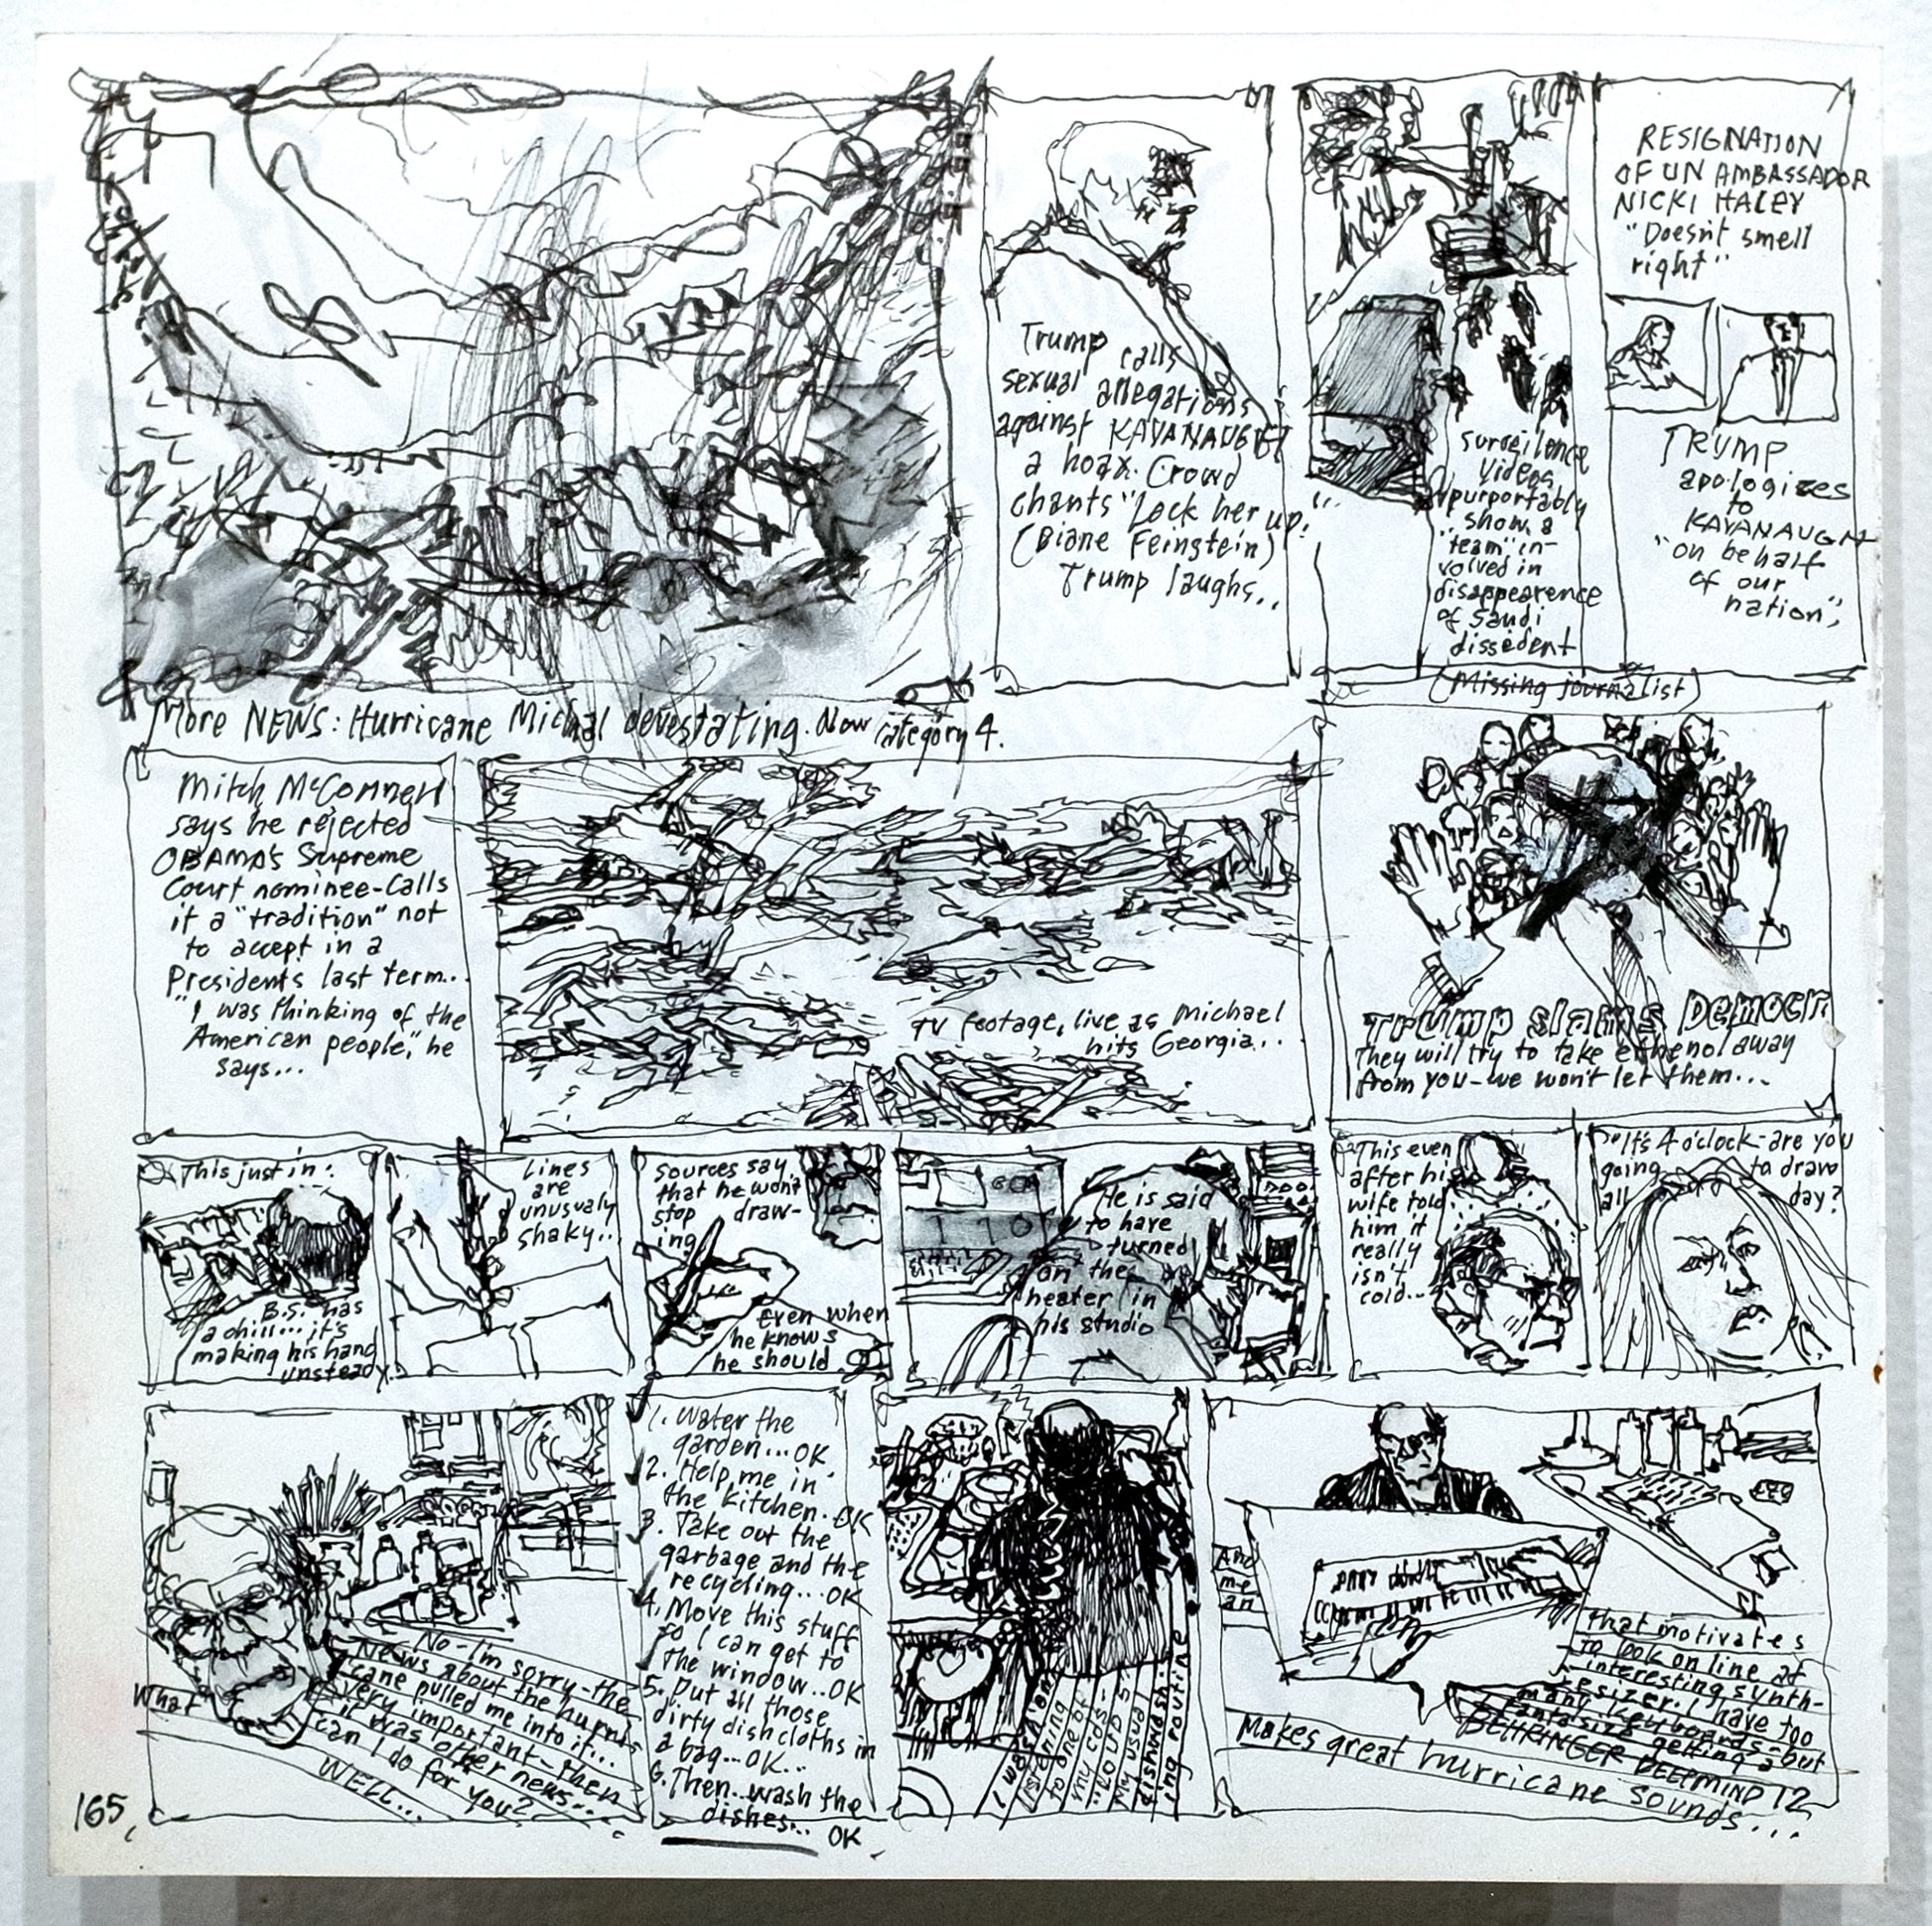 Trump calls
sexual allegations
against KAVANAUGH
a hoax. Crowd
chants "Lock her up!
(Diane Feinstein)
Trump laughs..
surveilence
videos
purportably
show a
"team" in-
volved in
disappearence
of Saudi
dissedent
(Missing journalist)
RESIGNATION
OF UN AMBASSADOR
NICKI HALEY
"Doesn't smell
right"
TRUMP
apologizes
to
KAVANAUGH
"on behalf
of our
nation",
More NEWS: Hurricane Michal devestating. Now category 4.
Mitch McConnell
says he rejected
OBAMA'S Supreme
Court nominee-calls
it a "tradition" not
to accept in a
Presidents last term...
"I was thinking of the
American people," he
says...
TV footage, live as Michael
hits Georgia...
TRUMP slams DEMOCR
They will try to take ethenol away
from you-we won't let them...
This just in:
B.S. has
a chill... it's
making his hand
unsteady.
Lines
are
unusualy
shaky...
Sources say
that he won't
stop draw-
ing
Even when
he knows
he should
He is said
to have
turned
on the
heater in
his studio
This even
after his
wife told
him it
really
isn't
cold...
It's 4 o'clock-are you
going to draw
all day?
No-I'm sorry-the
News about the hurri-
cane pulled me into it...
very important-then
it was other news...
What can I do for you?
WELL...
1. Water the
garden... OK
2. Help me in
the kitchen. OK
3. Take out the
garbage and the
recycling... OK
4. Move this stuff
so I can get to
the window.. OK
5. Put all those
dirty dishcloths in
a bag... OK..
6. Then..wash the
dishes... OK.
I was
listening
to one of
my cds-
my usual
dishwash-
ing routine
And
me
an
that motivates
to look on line at
interesting synth-
esizer. I have too
many keyboards-but
fantasize getting a
BEHRINGER DEEPMIND 12
Makes great hurricane sounds...
165,